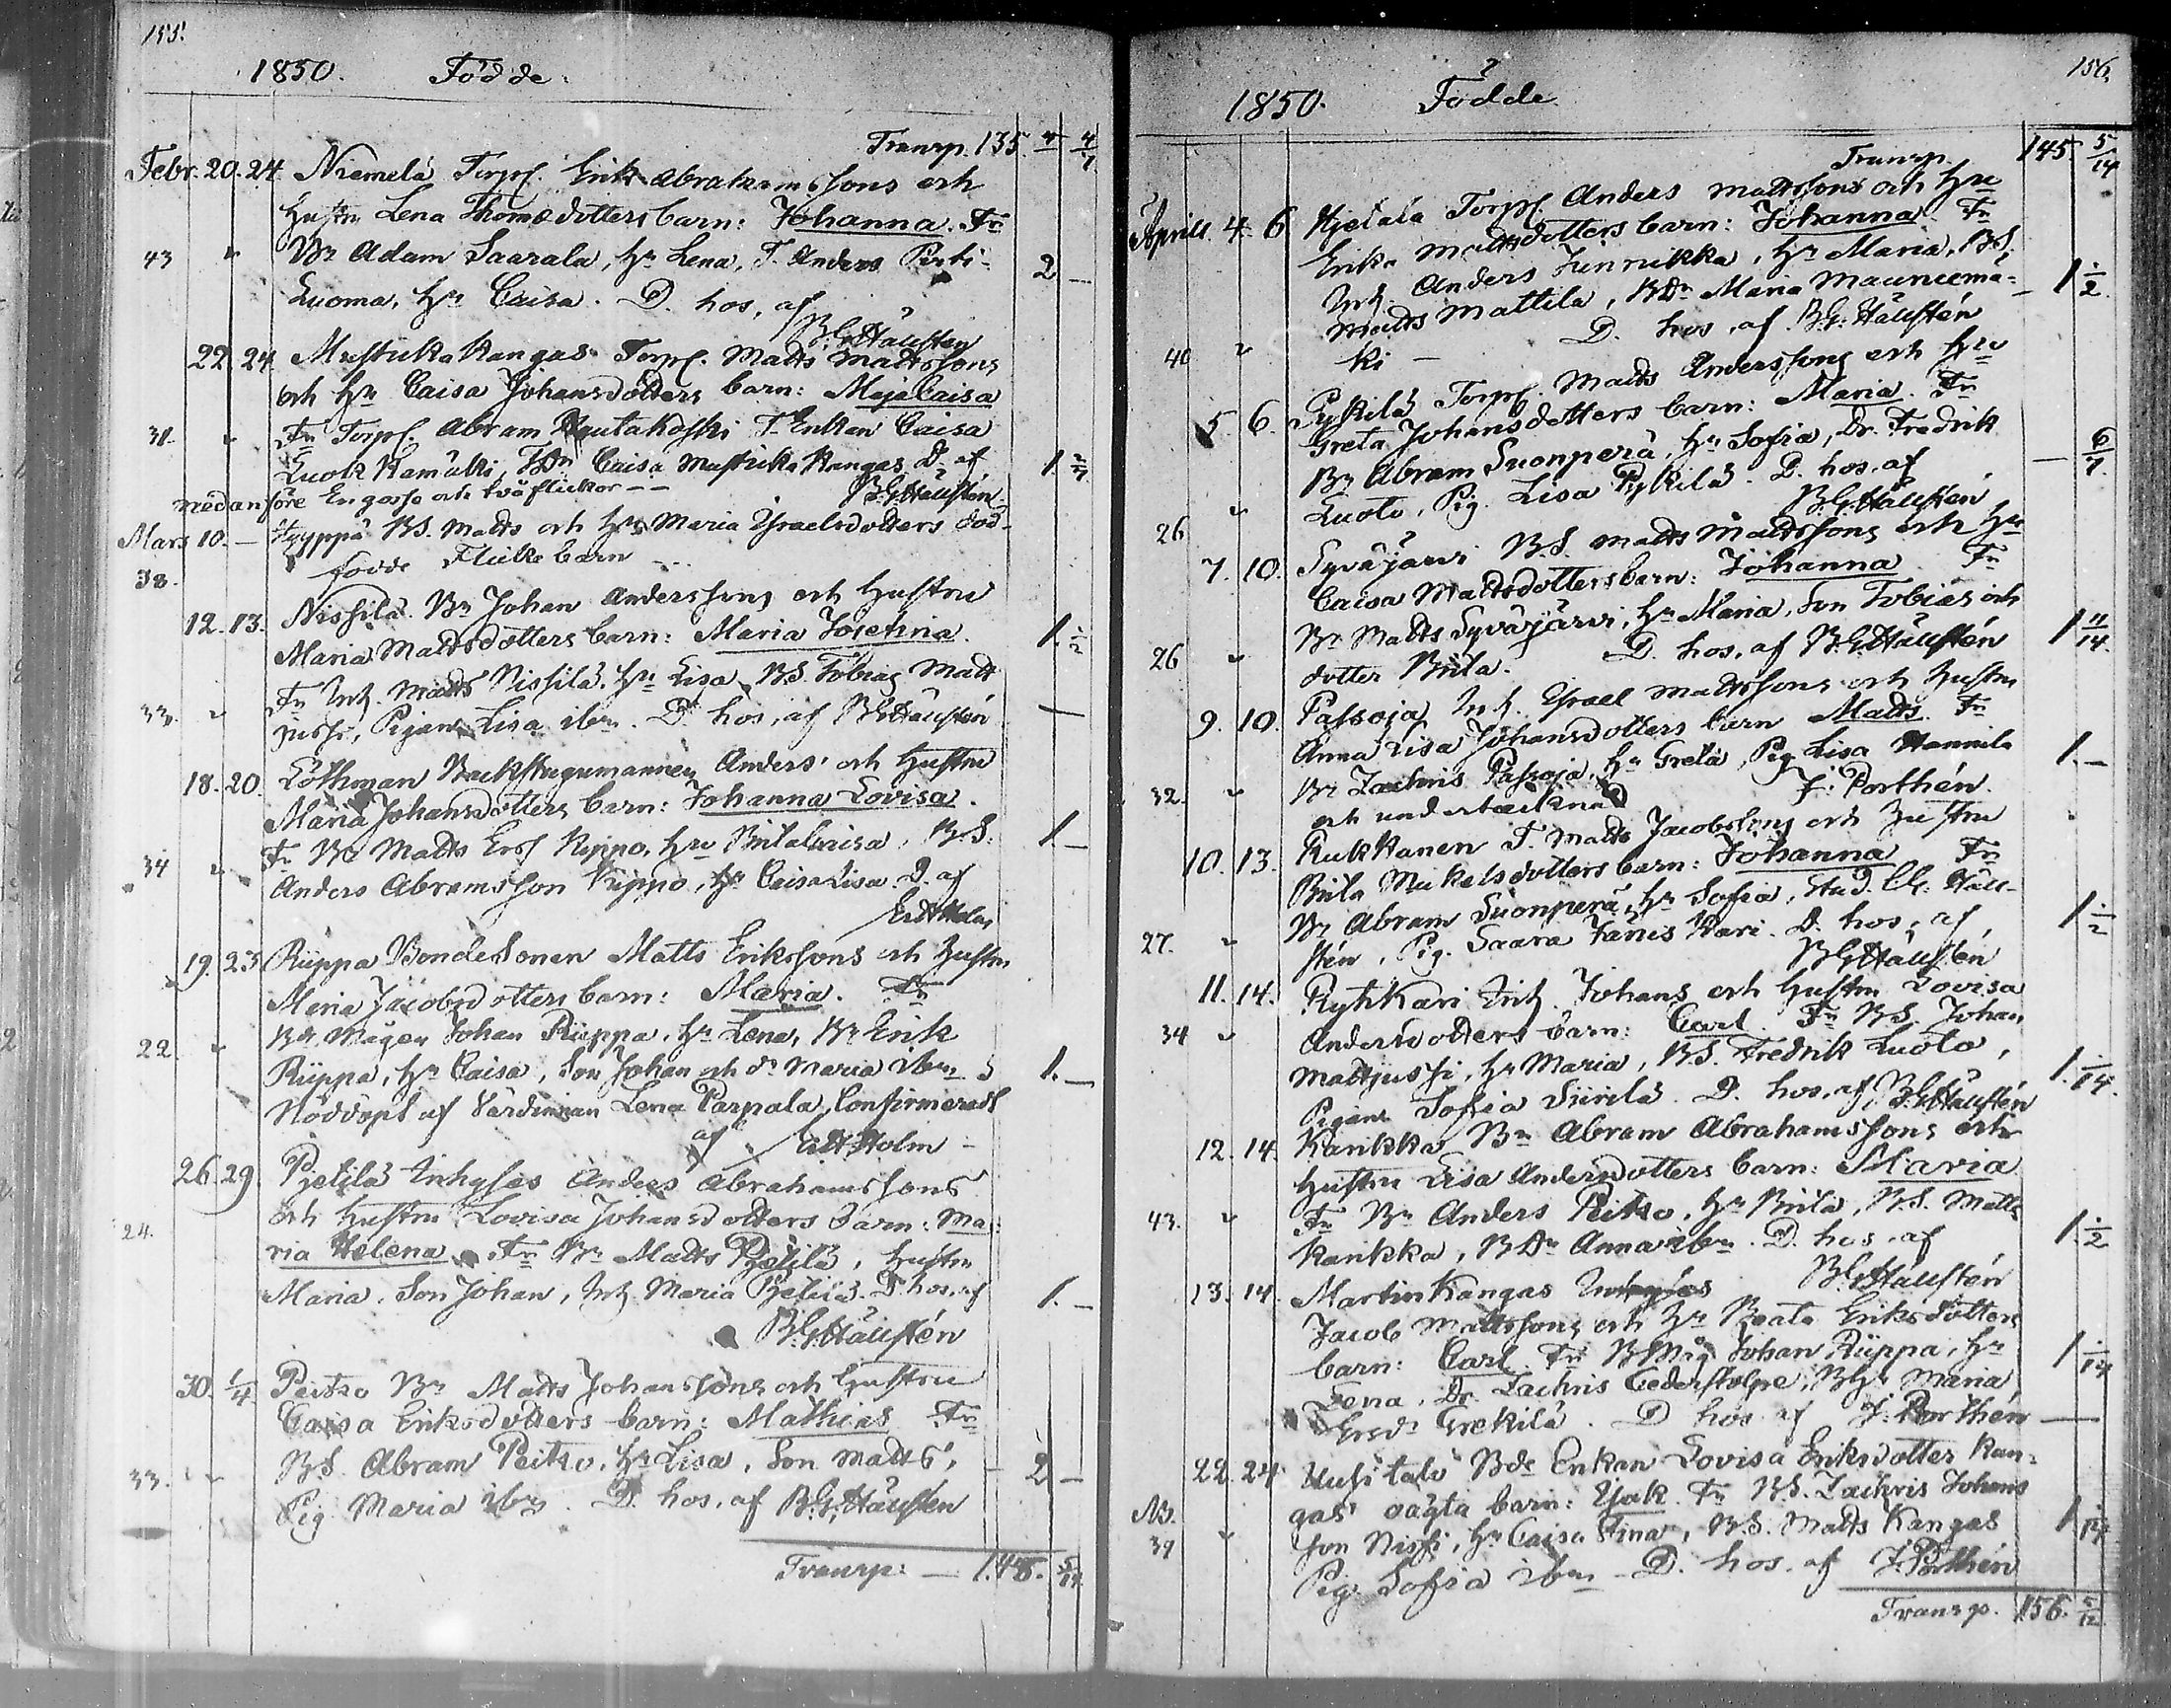 155.
1850. Födde.
Transp. 135. 4 4/7
Febr. 20. 24. Niemelä Torpf. Erik Abrahamssons och
Hustru Lena Thomædotters barn: Johanna. Fr
43 " Br Adam Saarala, Hr Lena, T. Anders Pirti-
Luoma, Hr Caisa. D. hos, af 2 —
B.G. Hällstén
22. 24. Mustikkakangas Torpf. Matts Mattssons
och Hr Caisa Johansdotters barn: Maja Caisa
31. " Fr Torpf. Abram Rautakoski T. Enkan Caisa
Luokkamäki, TDr Caisa Mustikkakangas D. af
B.G. Hällstén
nedanföre En gosse och två flickor —
Mars 10. — Hyyppä BS. Matts och Hrs Maria Israelsdotters död-
38. födde Flicke barn —
12. 13. Nissilä Br Johan Anderssons och Hustru
Maria Mattsdotters barn: Maria Josefina. 1. 1/2
33. " Fr Inh. Matts Nissilä, Hr Lisa, BS. Tobias Matt
jussi, Pigan Lisa ibm. D. hos, af B.G. Hällstén —
18. 20. Löthman Backstugumannen Anders' och Hustru
Maria Johansdotters barn: Johanna Lovisa.
34 " Fr Br Matts Ersf Rippo, Hru Brita Caisa, B.S. 1 —
Anders Abramsson Rippo, Hr Caisa Lisa. D. af
19. 23 Riippa BondeSonen Matts Erikssons och Hustru
Maria Jacobsdotters barn: Maria. Fr
22. " Br Mågen Johan Riippa, Hr Lena, Br Erik
Riippa, Hr Caisa, Son Johan och dr Maria ibm 1. —
Nöddöpt af Värdinnan Lena Parpala, Confirmeradt
af Holm —
26. 29. Pjelilä Inhyses Anders Abrahamssons
24. och Hustru Lovisa Johansdotters barn: Ma-
ria Helena. Fr Br Matts Pjetilä, Hustru
Maria, Son Johan, Inh. Maria Pjetilä. D. hos, af 1. —
B.G. Hällstén
30. 1/4 Peitzo Br Matts Johanssons och Hustru
Caisa Eriksdotters barn: Mathias Fr
33. " BS. Abram Peitzo, Hr Lisa, Son Matts, — 2 —
Pig Maria ibm. D. hos, af B.G. Hällstén
Transp: — 145. 5/14
156.
1850. Födde.
Transp. 145 5/14
Aprill. 4. 6 Hjetala Torpf Anders Mattssons och Hru
Erika Mattsdotters barn: Johanna. Fr
Inh. Anders Junnikka, Hr Maria, BS.
Matts Mattila, BDr Maria Mauniema- 1 1/2
40 " ki — D. hos, af B.G. Hällstén
5. 6. Pykilä Torpf. Matts Anderssons och Hru
Greta Johansdotters barn: Maria. Fr
Br Abram Suonperä, Hr Sofia, Dr. Fredrik — 6/7.
26 " Luoto, Pig. Lisa Pykilä. D. hos, af
B.G. Hällstén
7. 10. Syväjärvi B.S. Matts Mattssons och Hrs
Caisa Mattsdotters barn: Johanna. Fr
Br Matts Syväjärvi, Hr Maria, Son Tobias och
26 " dotter Brita. D. hos, af B.G. Hällstén 1 11/14.
9. 10. Passoja Inh. Israel Mattssons och Hustru
Anna Lisa Johansdotters barn Matts. Fr
32. " Br Zachris Passoja, Hr Greta, Pig Lisa Hannila 1. —
och undertecknad J. Porthén.
10. 13. Rukkanen T. Matts Jacobssons och Hustru
Brita Mickelsdotters barn: Johanna Fr
Br Abram Suonperä, Hr Sofia, Stud. Häll-
27. " stén, Pig. Saara Jänis kari. D. hos, af 1 1/2
B.G. Hällstén
11. 14. Rytikari Inh. Johans och Hustru Lovisa
34 " Andersdotters barn: Carl. Fr B.S. Johan
Mattjussi, Hr Maria, B.S. Fredrik Luoto, 1. 1/14.
Pigan Sofia Siirilä. D. hos, af B.G. Hällstén
12. 14. Karikka Br Abram Abrahamssons och
Hustru Lisa Andersdotters barn: Maria
43. " Fr Br Anders Peitzo, Hr Brita, B.S. Matts
Karikka, BDr Anna ibm. D. hos, af 1. 1/2
B.G. Hällstén
13. 14. Martinkangas Inhyses
Jacob Mattssons och Hr Beata Eriksdotters
barn: Carl. Fr BMåg Johan Riippa, Hr 1 1/14
Lena, Dr. Zachris Cederstolpe, Maria
Ersdr Grekilä. D hos af J. Porthén —
22. 24 Uusitalo Bde Enkan Lovisa Eriksdotter Kan-
No. gas' oägta barn: Isak. Fr B.S. Zachris Johans
39 " son Nissi, Hr Caisa Stina, B.S. Matts Kangas 1 1/14
Pig. Sofia ibm — D. hos. af J. Porthén
Transp. 156. 5/12